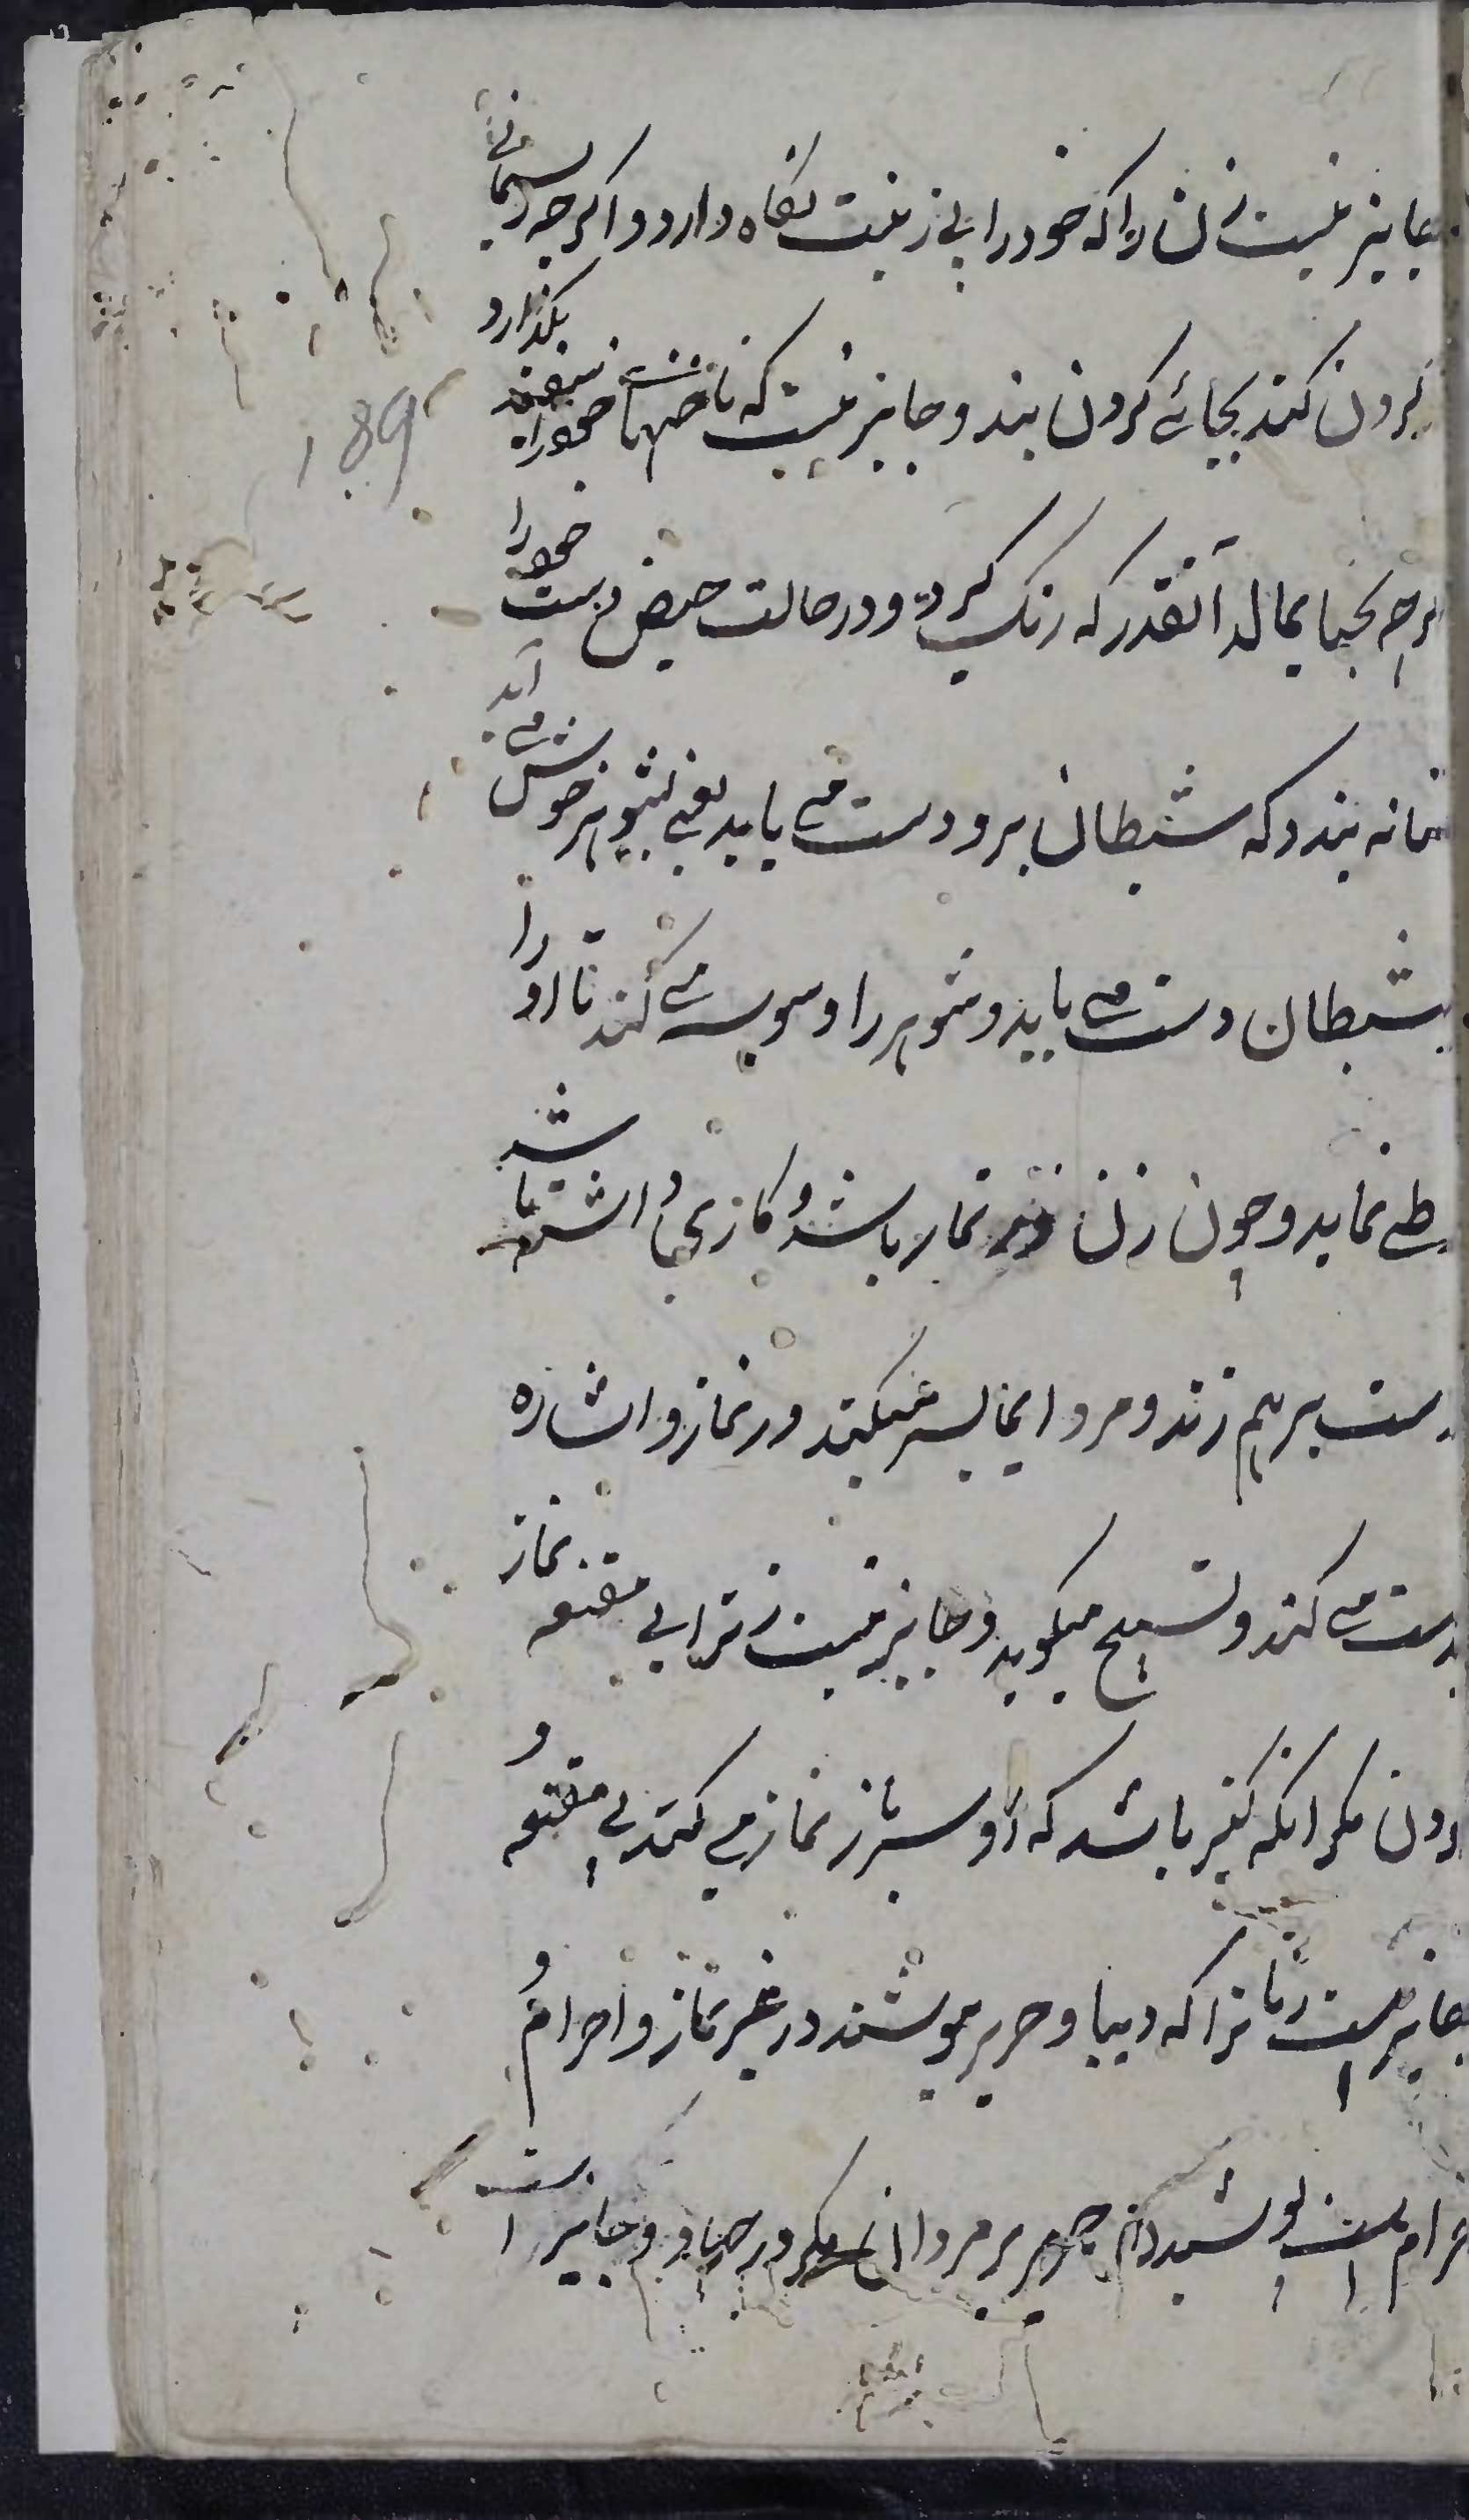 جایز نیست زنان را که خود را بی زینت نگاه دارد و اگرچه ریسمانی
گردن کند بجائے گردن بند و جایز نیست که ناخنهاے خود را سفید بگذارد
اگرچه بحنا بمالد آنقدر که رنک گیرد و در حالت حیض دست خود را
حنا نه بندد که شیطان برو دست می یابد یعنی بشوهر خوش می آید
شیطان دست می یابد و شوهر را وسوسه می کند تا او را
وطی نماید و چون زن در نماز باشد و کاری و اشته باشد
دست برهم زند و مرد ایما بسر میکند در نماز و اشاره
بدست می کند و تسبیح میکوید و جایز نیست زنرا بی مقنعه نماز
کردن مکر انکه کنیز باشد که او سر باز نماز می کند بی مقنعه و
جایز است زنانرا که دیبا و حریر پوشند در غیر نماز و احرام و
حرام است پوشیدن حریر بر مردان مکر در جهاد و جایز است
189